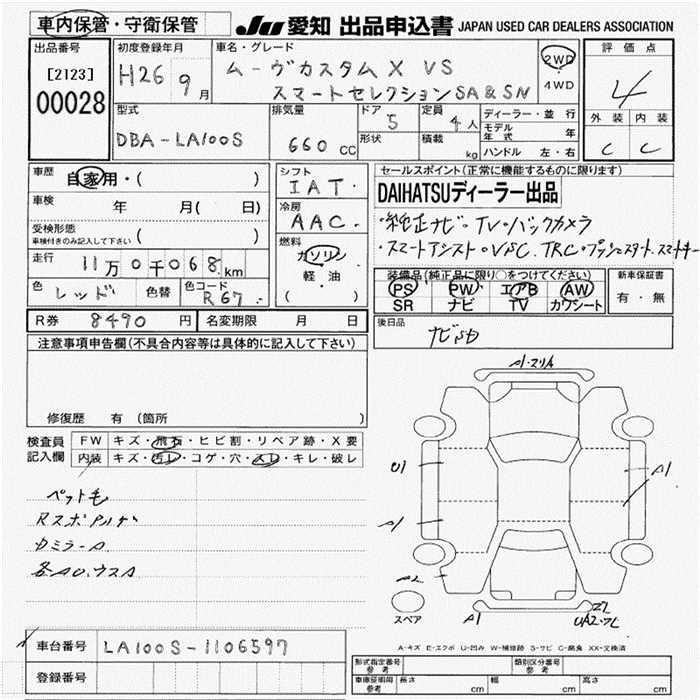 車内保管・守衛保管
JU 愛知 出品申込書 JAPAN USED CAR DEALERS ASSOCIATION
出品番号 初度登録年月 車名・グレード 評価点
[2123] H26 9月 ムーヴカスタムX VS 2WD 4
00028 スマートセレクションSA&SN 4WD
外装 内装
型式 排気量 ドア 定員 ディーラー・並行
DBA-LA100S 660cc 5 4人 モデル年式 年 C C
形状 積載 kg ハンドル 左・右
車歴 自家用・( ) シフト セールスポイント(正常に機能するものに限ります)
IAT・ DAIHATSUディーラー出品
車検 年 月( 日) 冷房
AAC. ・純正ナビ・TV・バックカメラ
受検形態 ( )
車検付きのみ記入して下さい
燃料 ・スマートアシスト・VSC.TRC・プッシュスタート.スマートキー
走行 11万0千068km ガソリン
装備品(純正品に限り○をつけてください) 新車保証書
軽・油 PS PW エアB AW 有・無
色 レッド 色替 色コード R67 ( ) SR ナビ TV カワシート
R券 8490円 名変期限 月 日 後日品
ナビSD
注意事項申告欄(不具合内容等は具体的に記入して下さい)
修復歴 有 (箇所 )
検査員 FW キズ・飛石・ヒビ割・リペア跡・X要
記入欄 内装 キズ・汚レ・コゲ・穴・スレ・キレ・破レ
ペット毛
A1
U1
A1
A1
A2
A1
スペア
A-キズ E-エクボ U-凹み W-補修跡 S-サビ C-腐食 XX-交換済
車台番号 LA100S-1106597
登録番号
形式指定番号 参考 類別区分番号 参考
車庫証明用 参考 長さ cm 幅 cm 高さ cm